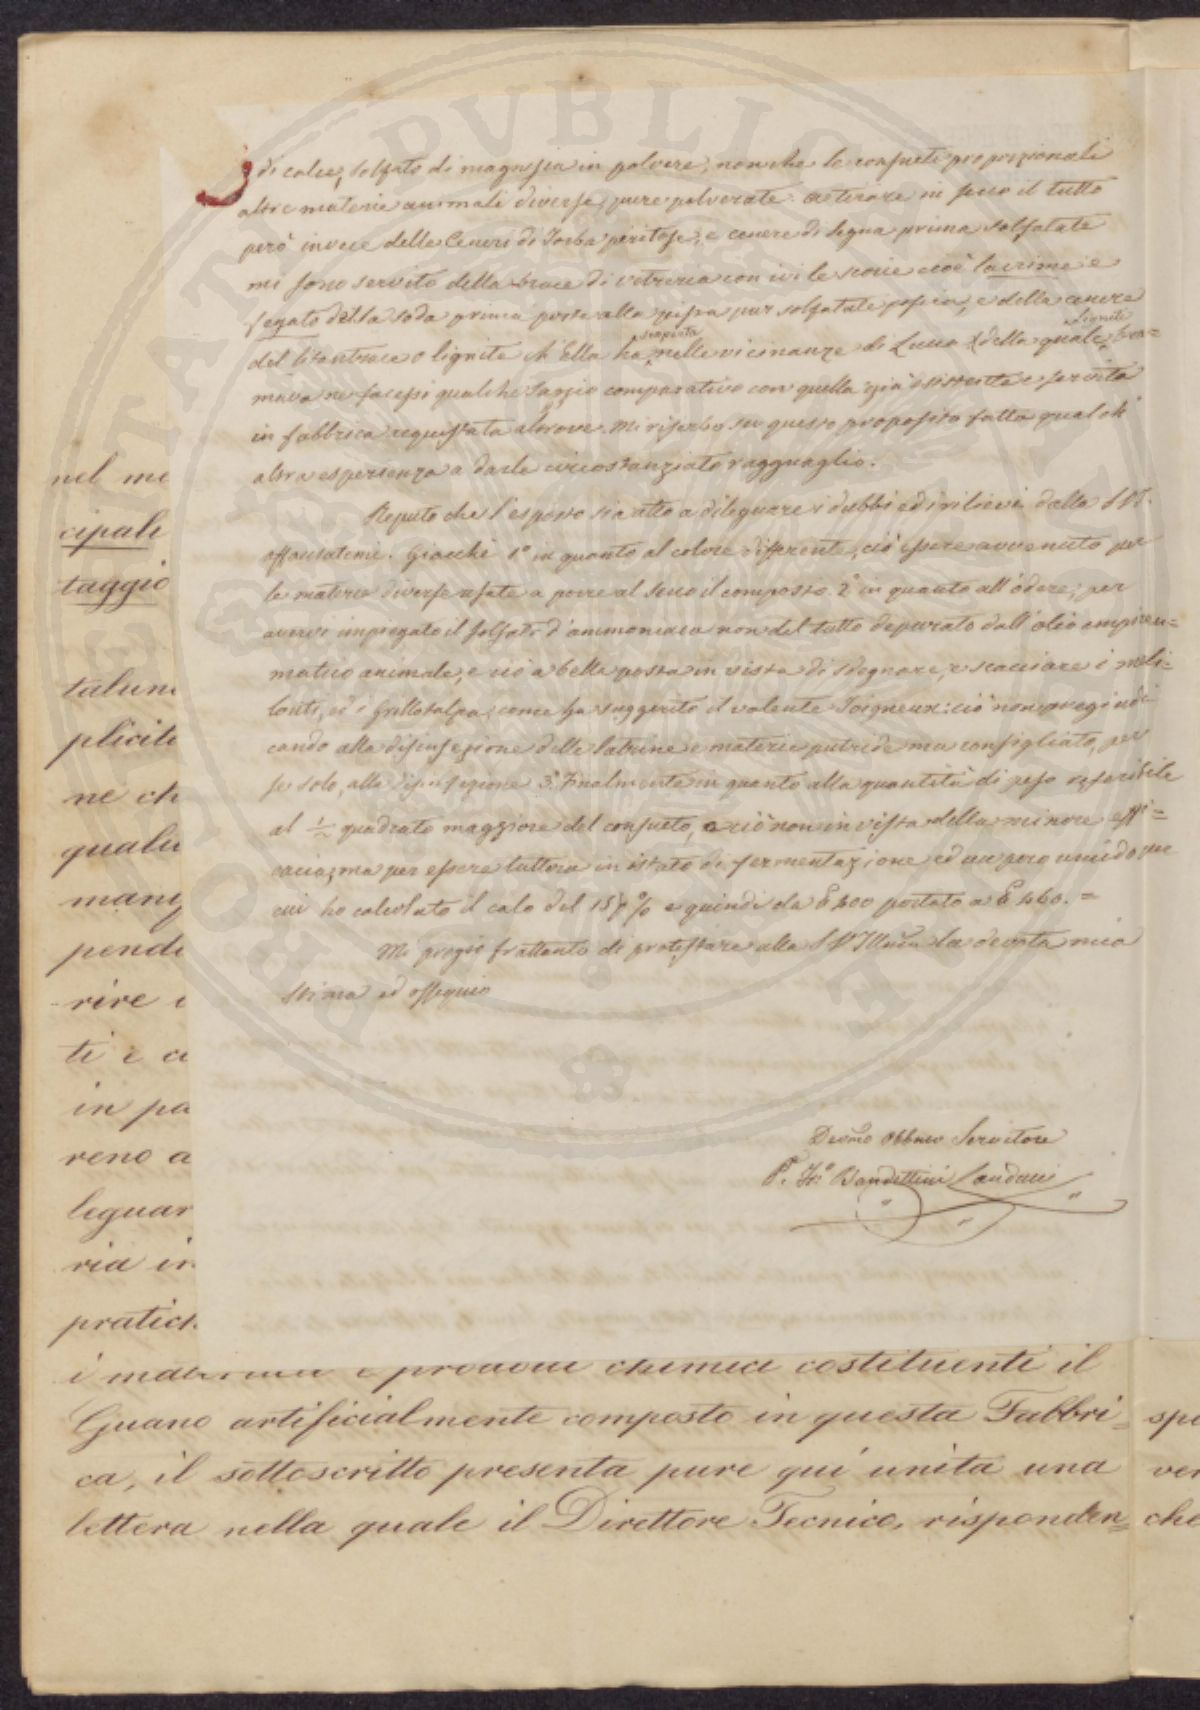 di calce, solfato di magnesia in polvere, nonche le consuete proporzionali
altre materie animali diverse, pure polverate. a tirare in secco il tutto
però invece delle Ceneri di Torba piritose, e cenere di legna prima solfatate
mi sono servito della brace di vetreria con ivi le scorie cioè lacrime e
fegato della soda prima poste alla pur solfatate e della cenere
del litantrace o lignite ch'Ella ha scoperta nelle vicinanze di Lucca della quale Lignite bra=
mava ne facessi qualche saggio comparativo con quella già esistente e servita
in fabbrica acquistata altrove. Mi riserbo su questo proposito fatta qualch'
altra esperienza a darle circostanziato ragguaglio.
Reputo che l'esposto sia atto a dileguare i dubbi ed i rilievi dalla S. V.
affacciatemi. Giacchè 1° in quanto al colore differente, ciò essere avvenuto per
le materie diverse usate a porre al secco il composto 2° in quanto all'odore; per
avervi impiegato il solfato d'ammoniaca non del tutto depurato dall'olio empireu=
matico animale, e ciò a bella posta in vista di sdegnare, e scacciare i meli=
lonti, ed i Grillotalpa; come ha suggerito il valente Joigneux: ciò non pregiudi
cando alla disinfezione delle latrine e materie putride ma consigliato, per
se solo, alla disinfezione 3° Finalmente in quanto alla quantità di peso referibile
al quadrato maggiore del consueto, e ciò non in vista della minore effi=
cacia; ma per essere tuttora in istato di fermentazione ed un poco umido per
cui ho calcolato il calo del 15 p% e quindi da £ 400 portato a £ 460. =
Mi pregio frattanto di protestare alla S V Illma la devota mia
stima ed ossequio
Devmo Obbmo Servitore
P. Fr.° Bandettini Landucci
nel me
cipali
taggio
talun
plicit
ne ch
qualu
mang
pende
rire
ti e a
in pa
reno a
leguar
ria in
pratich
i e prodotti chimici costituenti il
Guano artificialmente composto in questa Fabbri=
ca, il sottoscritto presenta pure qui unita una
lettera nella quale il Direttore Tecnico, risponden=
spe
ver
che